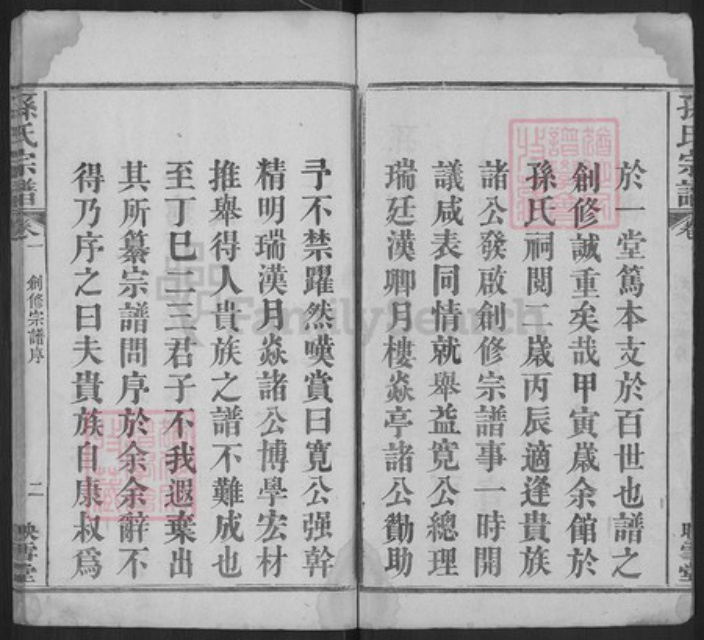 於一堂篤本支於百世也譜之
創修誠重矣哉甲寅歲余館於
孫氏祠閱二歲丙辰適逢貴族
諸公發啟創修宗譜事一時開
議咸表同情就舉益寬公總理
瑞廷漢卿月樓焱亭諸公勷助
予不禁躍然嘆賞曰寬公强幹
精明瑞漢月焱諸公博學宏材
推舉得人貴族之譜不難成也
至丁巳二三君子不我遐棄出
其所纂宗譜問序於余余辭不
得乃序之曰夫貴族自康叔爲
孫氏宗譜
卷一
創修宗譜序
二
映雪堂
FamilySearch